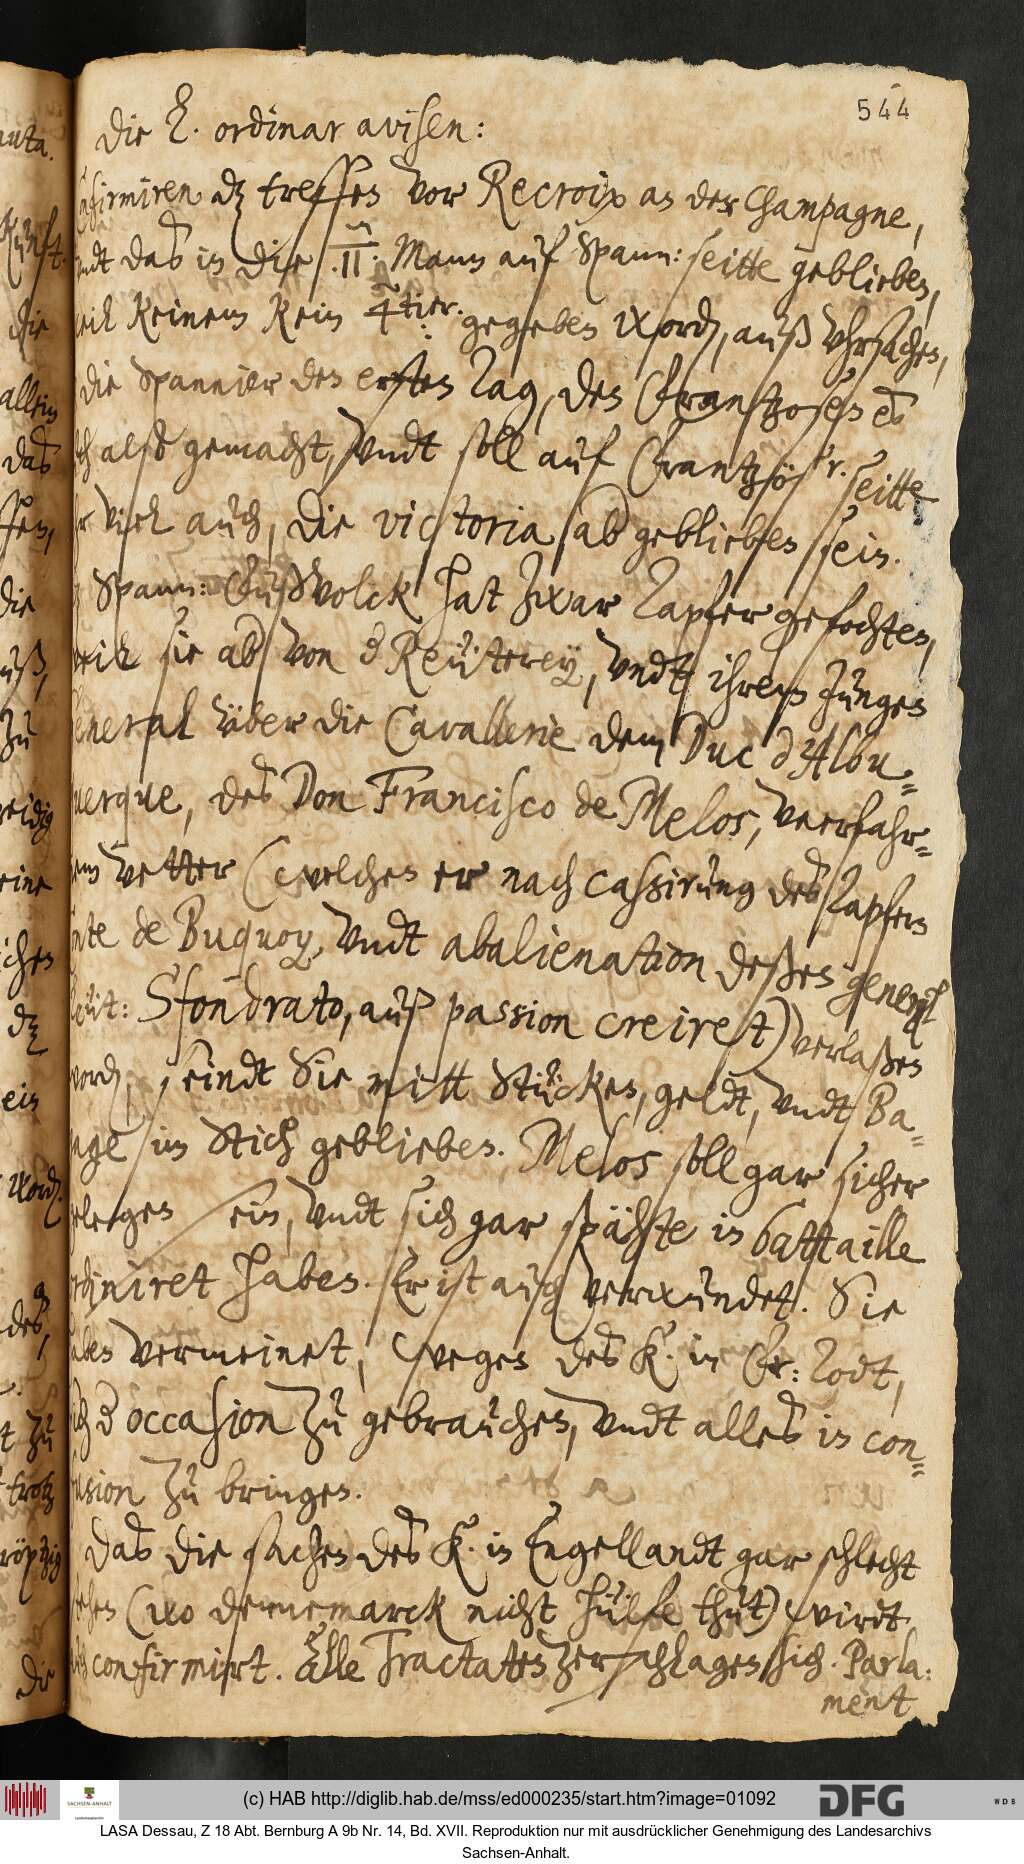 544
die E. ordinar avisen:
confirmiren dz treffen vor Recroix an der Champagne,
undt das in die .II. Mann auf Spann: seitte geblieben,
weil keinem kein 4tier. gegeben word, auß uhrsachen,
die Spannier den ersten Tag, den Frantzosen es
also gemacht, undt soll auf Frantzösr. seitte
viel auch, die victoria ab geblieben sein.
Spann: Fußvolck hat zwar Tapfer gefochten,
weil sie ab von d Reüterey, undt ihrem Jungen
general über die Cavallerie dem Duc d'Albu-
querque, des Don Francisco de Melos, veerfahr-
nem vetter (welchen er nach cassirung des Tapfern
Conte de Buquoy, undt abalienation deßen general
leüt: Sfondrato, auß passion creiret) verlaßen
word, seindt Sie mitt Stücken, geldt, undt Ba-
gage im Stich geblieben. Melos soll gar sicher
gelegen sein, undt sich gar späthte in battaille
ordiniret haben. Er ist auch verwundet. Sie
haben vermeinet, wegen des K. in Fr: Todt,
sich d occasion zu gebrauchen, undt alles in con-
fusion zu bringen.
Das die sachen des K. in Engellandt gar schlecht
stehen (wo dennemarck nicht hülfe thut) wirdt
auch confirmirt. Alle Tractatten zerschlagen sich. Parla:
ment
(c) HAB http://diglib.hab.de/mss/ed000235/start.htm?image=01092
SACHSEN-ANHALT
DFG
WDB
LASA Dessau, Z 18 Abt. Bernburg A 9b Nr. 14, Bd. XVII. Reproduktion nur mit ausdrücklicher Genehmigung des Landesarchivs
Sachsen-Anhalt.